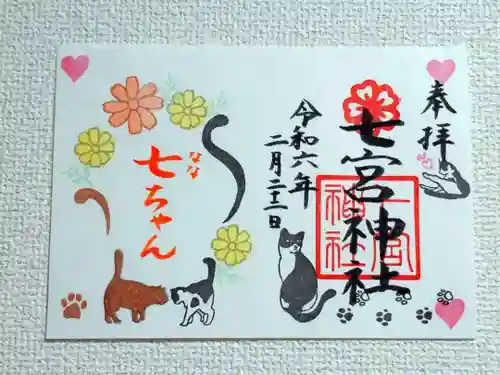 奉拝
七宮神社
七宮
神社
令和六年
二月二十二日
なな
七ちゃん